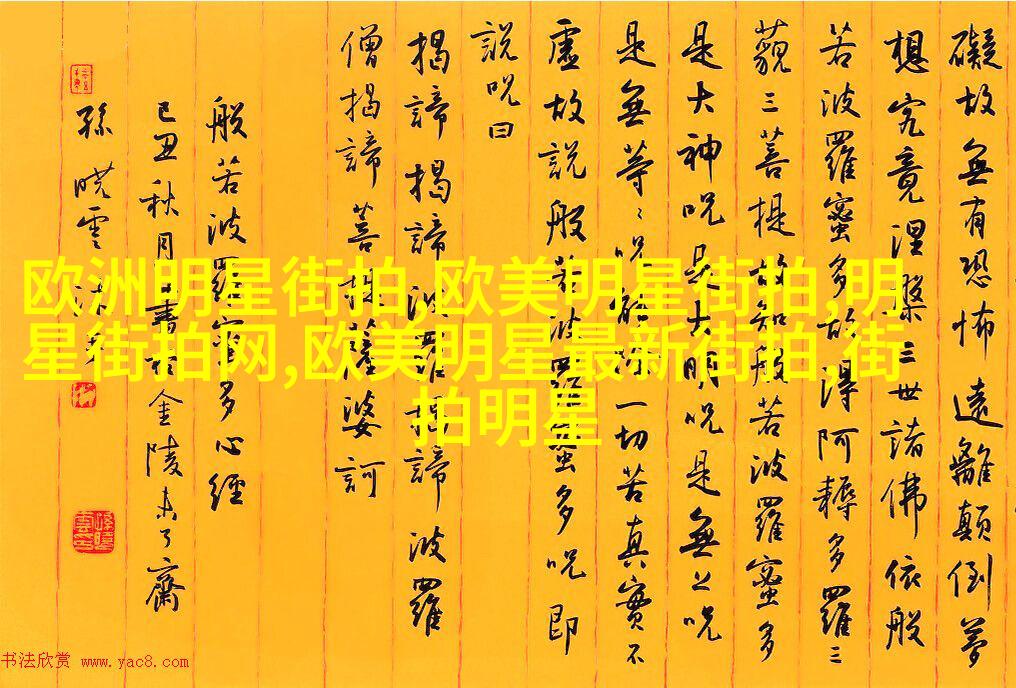 礙故無有恐怖遠離顛倒夢
想究竟涅槃三世諸佛依般
若波羅蜜多故得阿耨多羅三
藐三菩提故知般若波羅蜜多
是大神呪是大明呪是無上呪
是無等々呪能除一切苦真實不
虛故說般若波羅蜜多呪即
說呪曰
揭諦揭諦波羅揭諦波羅
僧揭諦菩提薩婆訶
般若波羅蜜多心經
己丑秋月書於金陵未了齋
孫曉雲
欧洲明星街拍,欧美明星街拍,明
星街拍网,欧美明星最新街拍,街
拍明星
书法欣赏 www.yac8.com